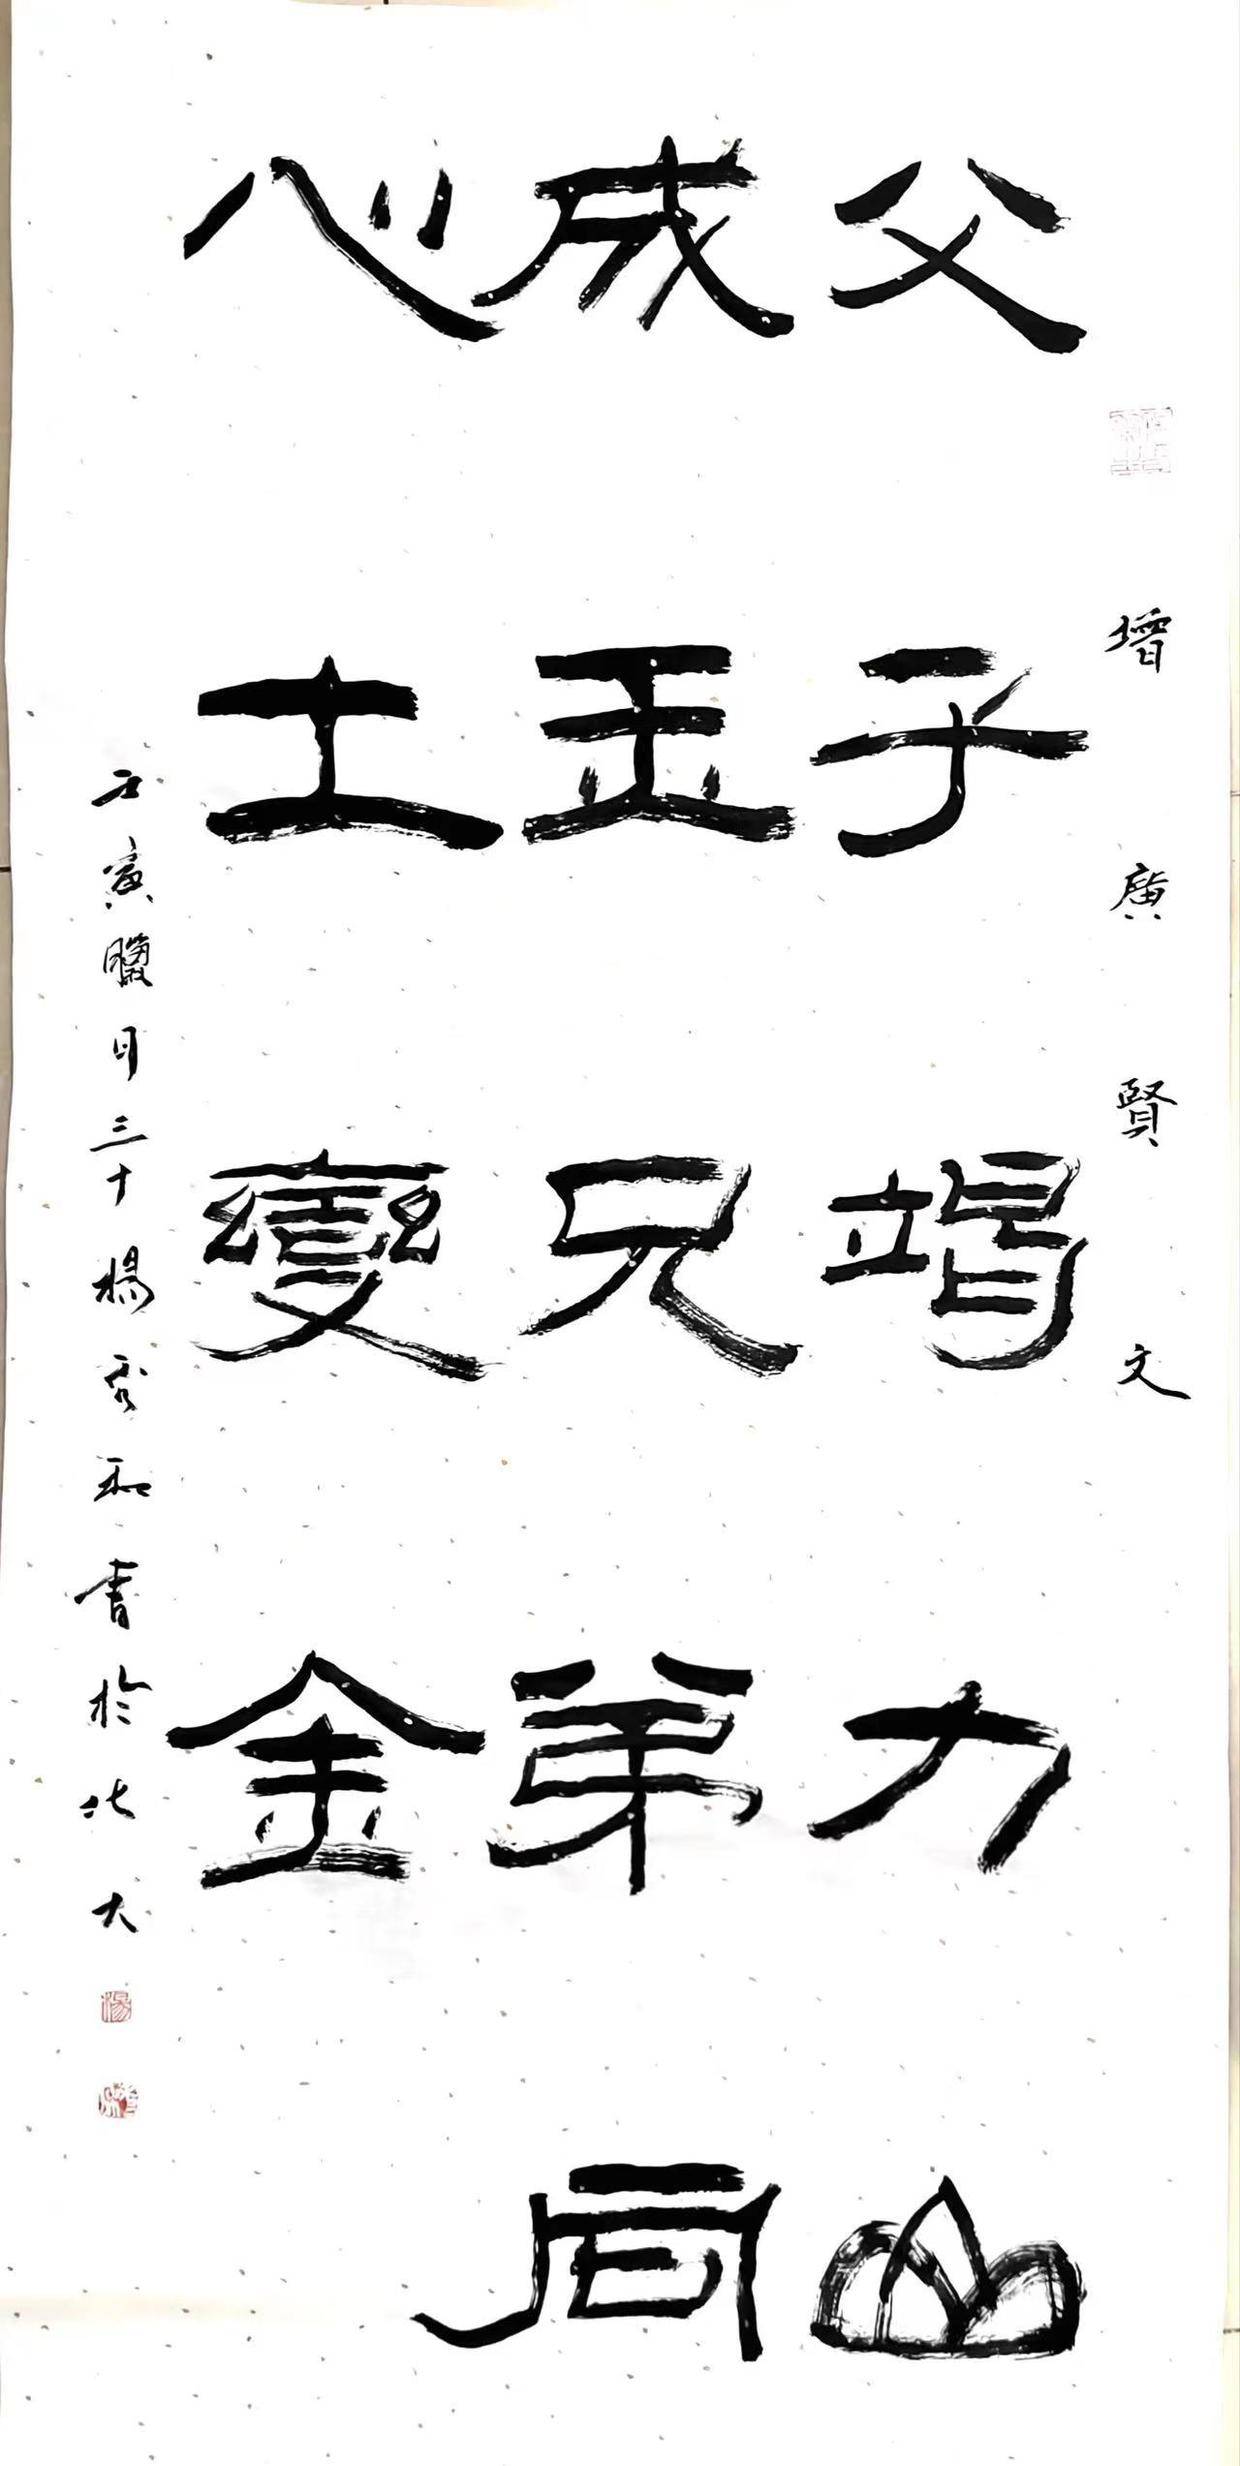 增廣賢文
父子竭力山
成玉兄弟同
心土變金
壬寅臘月三十楊秀和書於北大
楊